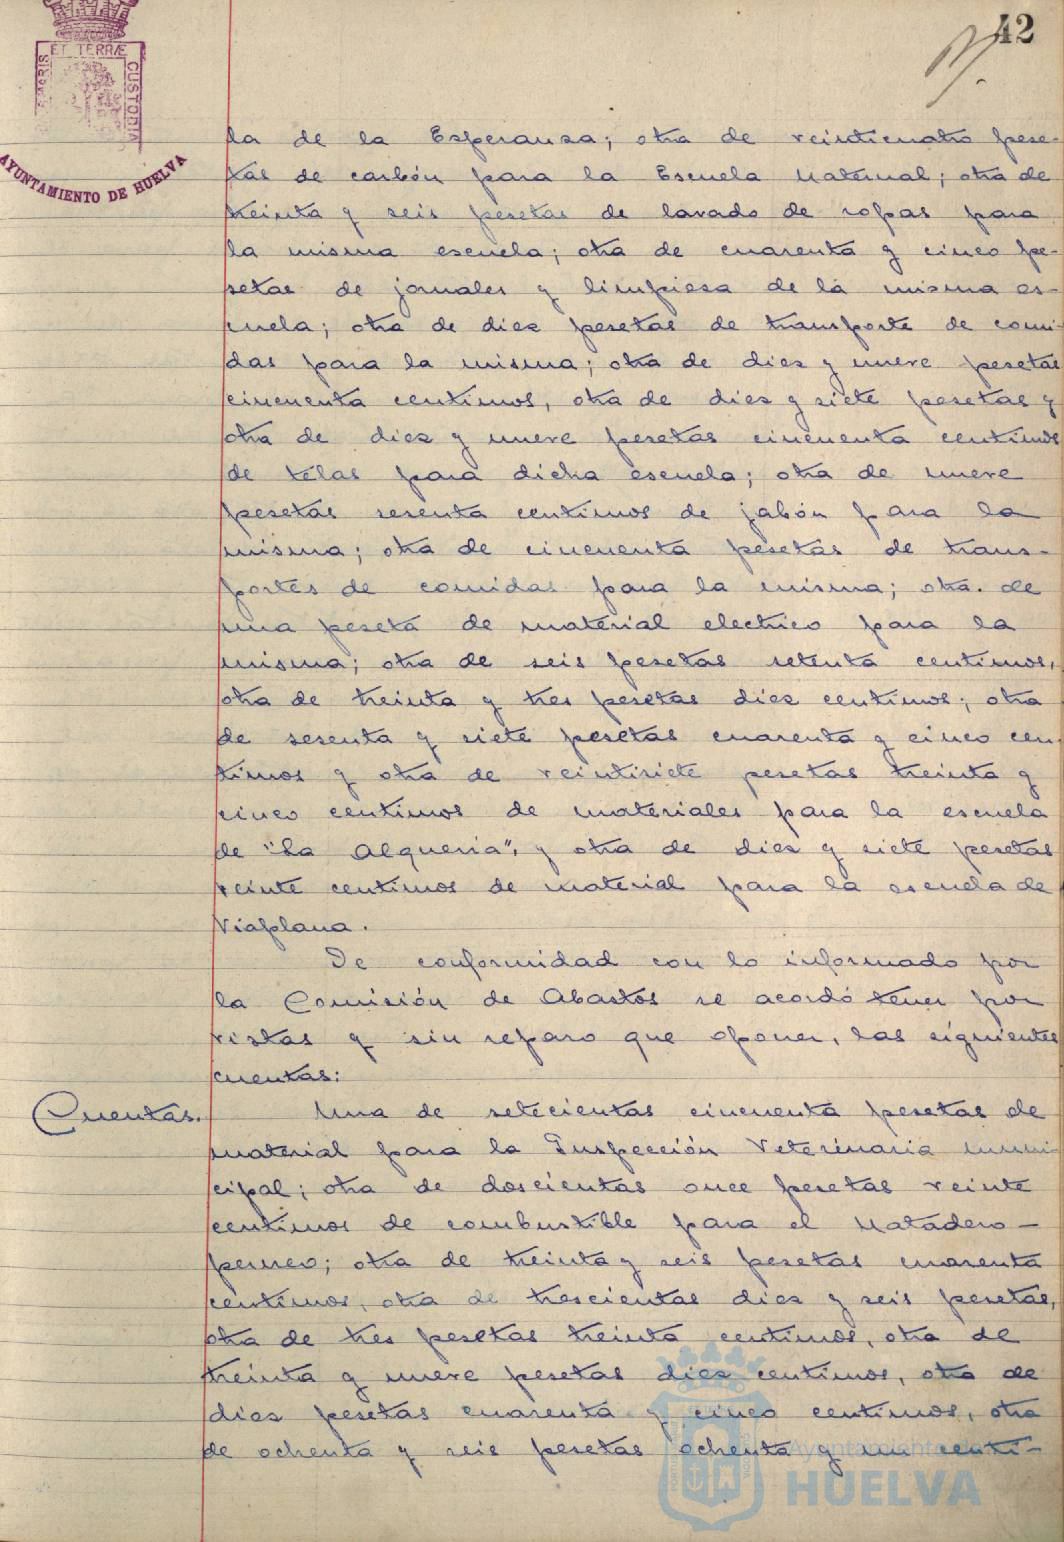 42
ET TERRÆ
MARIS
CUSTODIA
AYUNTAMIENTO DE HUELVA
la de la Esperanza; otra de veinticuatro pese-
tas de carbón para la Escuela Maternal; otra de
treinta y seis pesetas de lavado de ropas para
la misma escuela; otra de cuarenta y cinco pe-
setas de jornales y limpieza de la misma es-
cuela; otra de diez pesetas de transporte de comi-
das para la misma; otra de diez y nueve pesetas
cincuenta centimos, otra de diez y siete pesetas y
otra de diez y nueve pesetas cincuenta centimos
de telas para dicha escuela; otra de nueve
pesetas sesenta centimos de jabón para la
misma; otra de cincuenta pesetas de trans-
portes de comidas para la misma; otra. de
una peseta de material electrico para la
misma; otra de seis pesetas setenta centimos,
otra de treinta y tres pesetas diez centimos; otra
de sesenta y siete pesetas cuarenta y cinco cen-
timos y otra de veintisiete pesetas treinta y
cinco centimos de materiales para la escuela
de "La Alqueria", y otra de diez y siete pesetas
veinte centimos de material para la escuela de
Viaplana.
De conformidad con lo informado por
la Comisión de Abastos se acordó tener por
vistas y sin reparo que oponer, las siguientes
cuentas:
Cuentas. Una de setecientas cincuenta pesetas de
material para la Inspección Veterinaria muni-
cipal; otra de doscientas once pesetas veinte
centimos de combustible para el Matadero-
perreo; otra de treinta y seis pesetas cuarenta
centimos, otra de trescientas diez y seis pesetas,
otra de tres pesetas treinta centimos, otra de
treinta y nueve pesetas diez centimos, otra de
diez pesetas cuarenta y cinco centimos, otra
de ochenta y seis pesetas ochenta y un centi-
Ayuntamiento de
HUELVA